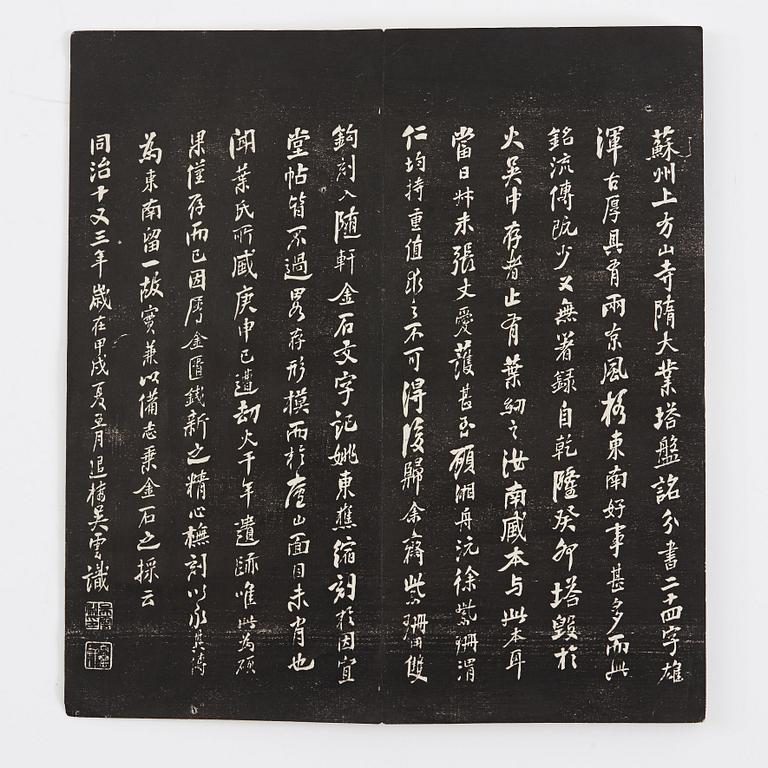 蘇州上方山寺隋大業塔盤銘分書二十四字雄
渾古厚具有兩京風格東南好事甚多而此
銘流傳既少又無著錄自乾隆癸卯塔毀於
火吳中存者止有葉紉之汝南藏本与此本耳
當日叔未張丈愛護甚至顧湘舟沅徐紫珊渭
仁均持重值求之不可得後歸余齋紫珊用雙
鉤刻入隨軒金石文字記姚東樵縮刻於因宜
堂帖皆不過畧存形模而於廬山面目未肖也
聞葉氏所藏庚申已遭劫火千年遺跡唯此為碩
果僅存而已因屬金匱錢新之精心橅刻以永其傳
為東南留一故實兼以備志乘金石之採云
同治十又三年歲在甲戌夏五月退樓吳雲識